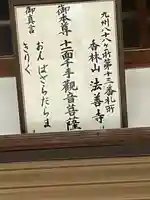 九州八十八ヶ所第十三番札所
香林山 法善寺
御本尊 十一面千手観音菩薩
御真言
おん ばざらだらま
きりく